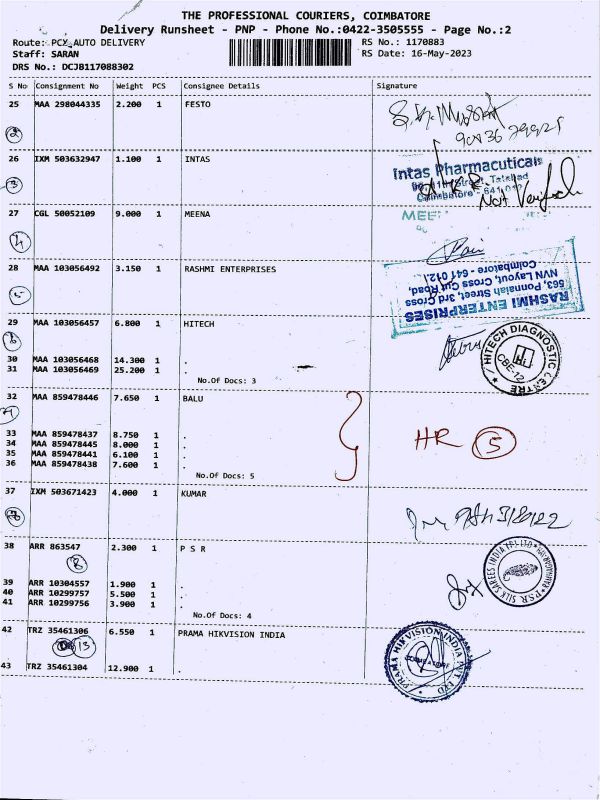 THE PROFESSIONAL COURIERS, COIMBATORE
Delivery Runsheet - PNP - Phone No.:0422-3505555 - Page No.:2
Route: PCX AUTO DELIVERY RS No.: 1170883
Staff: SARAN RS Date: 16-May-2023
DRS No.: DCJB117088302
S No Consignment No Weight PCS Consignee Details Signature
25 MAA 298044335 2.200 1 FESTO
2
26 IXM 503632947 1.100 1 INTAS
Intas Pharmaceuticals
Coimbatore - 641 012
3
27 CGL 50052109 9.000 1 MEENA
4
28 MAA 103056492 3.150 1 RASHMI ENTERPRISES
5
RASHMI ENTERPRISES
563, Ponnaiah Street, 3rd Cross
NVN Layout, Cross Cut Road,
Coimbatore - 641 012
29 MAA 103056457 6.800 1 HITECH
6
HITECH DIAGNOSTIC CENTRE
Hi
CBE-12
30 MAA 103056468 14.300 1 .
31 MAA 103056469 25.200 1 .
No.Of Docs: 3
32 MAA 859478446 7.650 1 BALU
33 MAA 859478437 8.750 1 .
34 MAA 859478445 8.000 1 .
35 MAA 859478441 6.100 1 .
36 MAA 859478438 7.600 1 .
HR 5
No.Of Docs: 5
37 IXM 503671423 4.000 1 KUMAR
38 ARR 863547 2.300 1 P S R
8
PSR SILK SAREES INDIA (P) LTD
39 ARR 10304557 1.900 1 .
40 ARR 10299757 5.500 1 .
41 ARR 10299756 3.900 1 .
No.Of Docs: 4
42 TRZ 35461306 6.550 1 PRAMA HIKVISION INDIA
13
PRAMA HIKVISION INDIA PVT LTD
COIMBATORE
43 TRZ 35461304 12.900 1 .